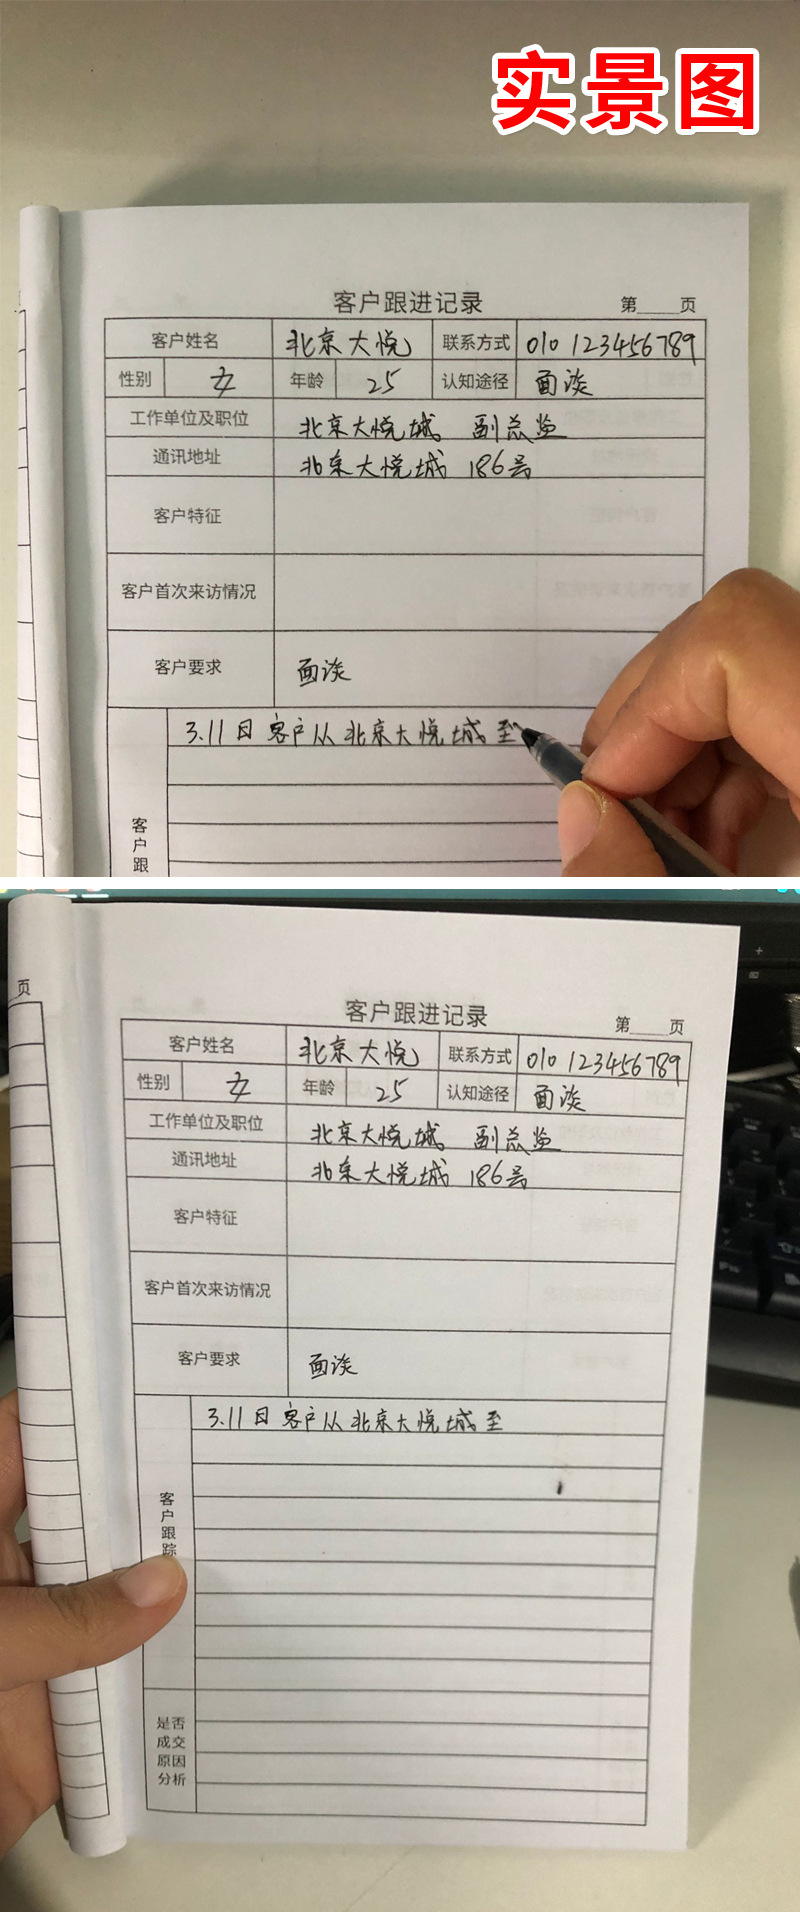 实景图
客户跟进记录
第____页
客户姓名 北京大悦 联系方式 010 123456789
性别 女 年龄 25 认知途径 面谈
工作单位及职位 北京大悦城 副总监
通讯地址 北京大悦城 186号
客户特征
客户首次来访情况
客户要求 面谈
3.11日客户从北京大悦城至
客户跟
页
客户跟进记录
第____页
客户姓名 北京大悦 联系方式 010 123456789
性别 女 年龄 25 认知途径 面谈
工作单位及职位 北京大悦城 副总监
通讯地址 北京大悦城 186号
客户特征
客户首次来访情况
客户要求 面谈
3.11日客户从北京大悦城至
客户跟踪
是否
成交
原因
分析